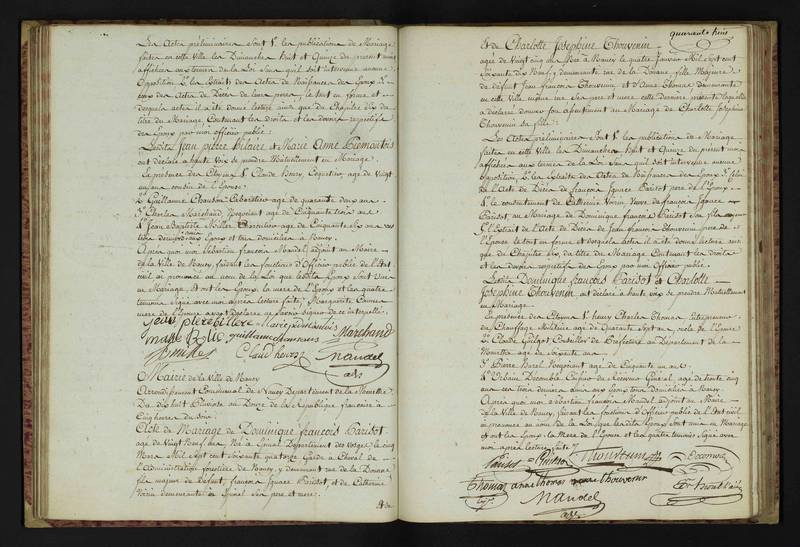 Les Actes préliminaires sont 1° les publications de Mariage
faites en cette Ville les Dimanches huit et Quinze du présent mois
affichées aux termes de la Loi sans qu'il soit intervenu aucune
Opposition 2° les Extraits des Actes de Naissances des Epoux 3°
ceux des Actes de Décès de leurs pères, le tout en forme et
desquels actes il a été donné lecture ainsi que du Chapitre Six du
titre du Mariage, Contenant les droits et les devoirs respectifs
des Epoux par moi officier public.
Lesdits Jean pierre hilaire et Marie Anne Piemontois
ont déclaré à haute Voix se prendre Mutuellement en Mariage.
En présence des Citoyens 1° Claude
de l'Epouse.
2° Guillaume Chausson Cabaretier agé de quarante deux ans
3° Charles Marchand Négociant agé de Cinquante trois ans
4° Jean Baptiste agé de Cinquante six ans
Epoux et tous domiciliés à Nancy.
Après quoi moi Sébastien françois Mandel adjoint au Maire
de la Ville de Nancy, faisant les fonctions d'Officier public de l'Etat
civil ai prononcé au nom de la Loi que lesdits Epoux sont Unis
en Mariage, et ont les Epoux, la mere de l'Epoux et les quatre
temoins signé avec moi après lecture faite, Marguerite
mere de l'Epouse ayant déclaré ne savoir signer de ce interpellée.
Marchand
Mandel
adj
Mairie de la Ville de Nancy
Arrondissement Communal de Nancy Département de la Meurthe
Du dix huit Pluviose an Douze de la République françoise à
Cinq heures du soir
Acte de Mariage de Dominique françois Parisot
agé de Vingt Neuf ans Né à Epinal Département des Vosges le cinq
Mars Mil Sept cent soixante quatorze Garde à Cheval de
l'Administration forestiere de Nancy, y demeurant rue de la Douane
fils majeur de défunt françois Ignace Parisot, et de Catherine
Voirin demeurante à Epinal ses pere et mere.
Et de
quarante huit
Et de Charlotte Josephine Thouvenin
agée de Vingt cinq ans Née à Nancy le quatre Janvier Mil Sept cent
Soixante dix Neuf, y demeurante rue de la Douane fille Majeure
de défunt Jean françois Thouvenin et d'Anne Thomas demeurante
en cette Ville même rue Ses pere et mere cette derniere présente laquelle
a déclaré donner son consentement au Mariage de Charlotte Joséphine
Thouvenin sa fille.
Les Actes préliminaires sont 1° les publications de Mariage
faites en cette Ville les Dimanches huit et Quinze du présent mois
affichées aux termes de la Loi sans qu'il soit intervenu aucune
opposition, 2° les Extraits des Actes de Naissances des Epoux 3° Celui
de l'Acte de Décès de françois Ignace Parisot pere de l'Epoux
4° le consentement de Catherine Voirin Veuve de françois Ignace
Parisot au Mariage de Dominique françois Parisot son fils
5° l'Extrait de l'Acte de Décès de Jean françois Thouvenin pere de
l'Epouse le tout en forme et desquels actes il a été donné lecture ainsi
que du Chapitre Six du titre du Mariage Contenant les droits
et les devoirs respectifs des Epoux par moi Officier public.
Lesdits Dominique françois Parisot et Charlotte
Josephine Thouvenin ont déclaré à haute voix se prendre Mutuellement
en Mariage.
En présence des Citoyens 1° henry Charles Thomas Entrepreneur
du Chauffage Militaire agé de Quarante Sept ans, oncle de l'Epouse
2° Claude Conseiller de Préfecture au Département de la
Meurthe agé de soixante ans
3° Pierre Négociant agé de Cinquante un ans
4° du Receveur Général, agé de trente cinq
ans ces trois derniers amis des Epoux tous Domiciliés à Nancy.
Après quoi moi Sébastien françois Mandel adjoint au Maire
de la Ville de Nancy, faisant les fonctions d'Officier public de l'Etat civil
ai prononcé au nom de la Loi que lesdits Epoux sont unis en Mariage
et ont les Epoux la Mere de l'Epouse et les quatre temoins signé avec
moi après lecture faite.
Parisot Thouvenin
Thomas anne thomas veuve thouvenin
Mandel
adj